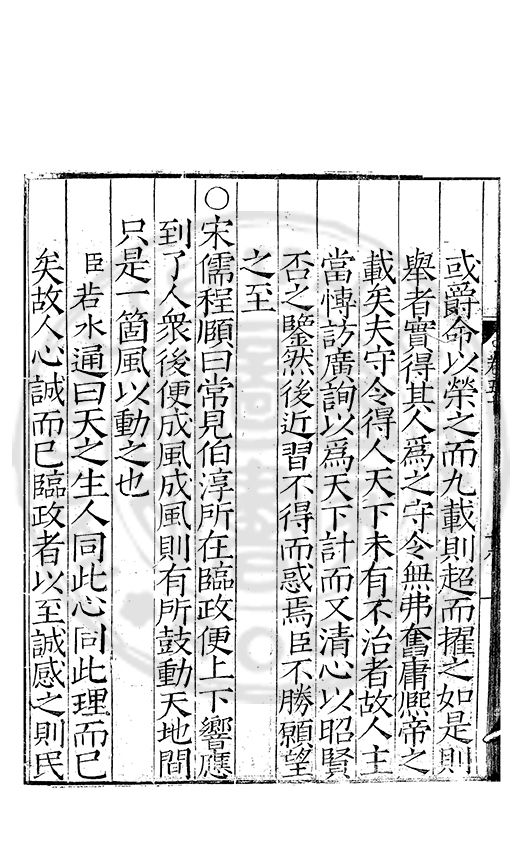 或爵命以榮之而九載則超而擢之如是則
舉者實得其人爲之守令無弗奮庸熈帝之
載矣夫守令得人天下未有不治者故人主
當博訪廣詢以爲天下計而又清心以昭賢
否之鑒然後近習不得而惑焉臣不勝願望
之至
○宋儒程頤曰常見伯淳所在臨政便上下響應
到了人衆後便成風成風則有所鼓動天地間
只是一箇風以動之也
臣若水通曰天之生人同此心同此理而已
矣故人心誠而已臨政者以至誠感之則民